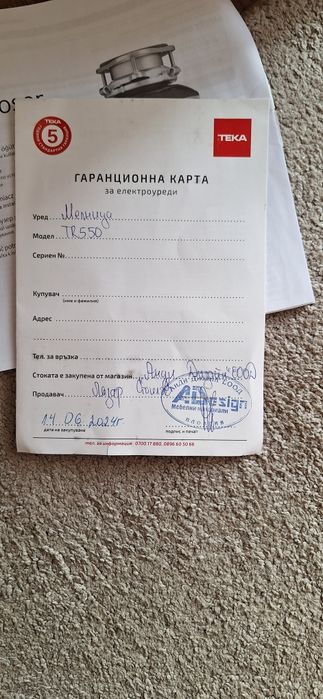 TEKA
5
TEKA
ГАРАНЦИОННА КАРТА
за електроуреди
Уред Мелница
Модел TR550
Сериен №
Купувач
(име и фамилия)
Адрес
Тел. за връзка
Стоката е закупена от магазин "Анди Дизайн" ЕООД
Продавач Лазар
ADesign
Мебелни материали
ПЛОВДИВ
14.06.2024г
дата на закупуване
подпис и печат
тел. за информация 0700 17 880, 0896 60 50 66